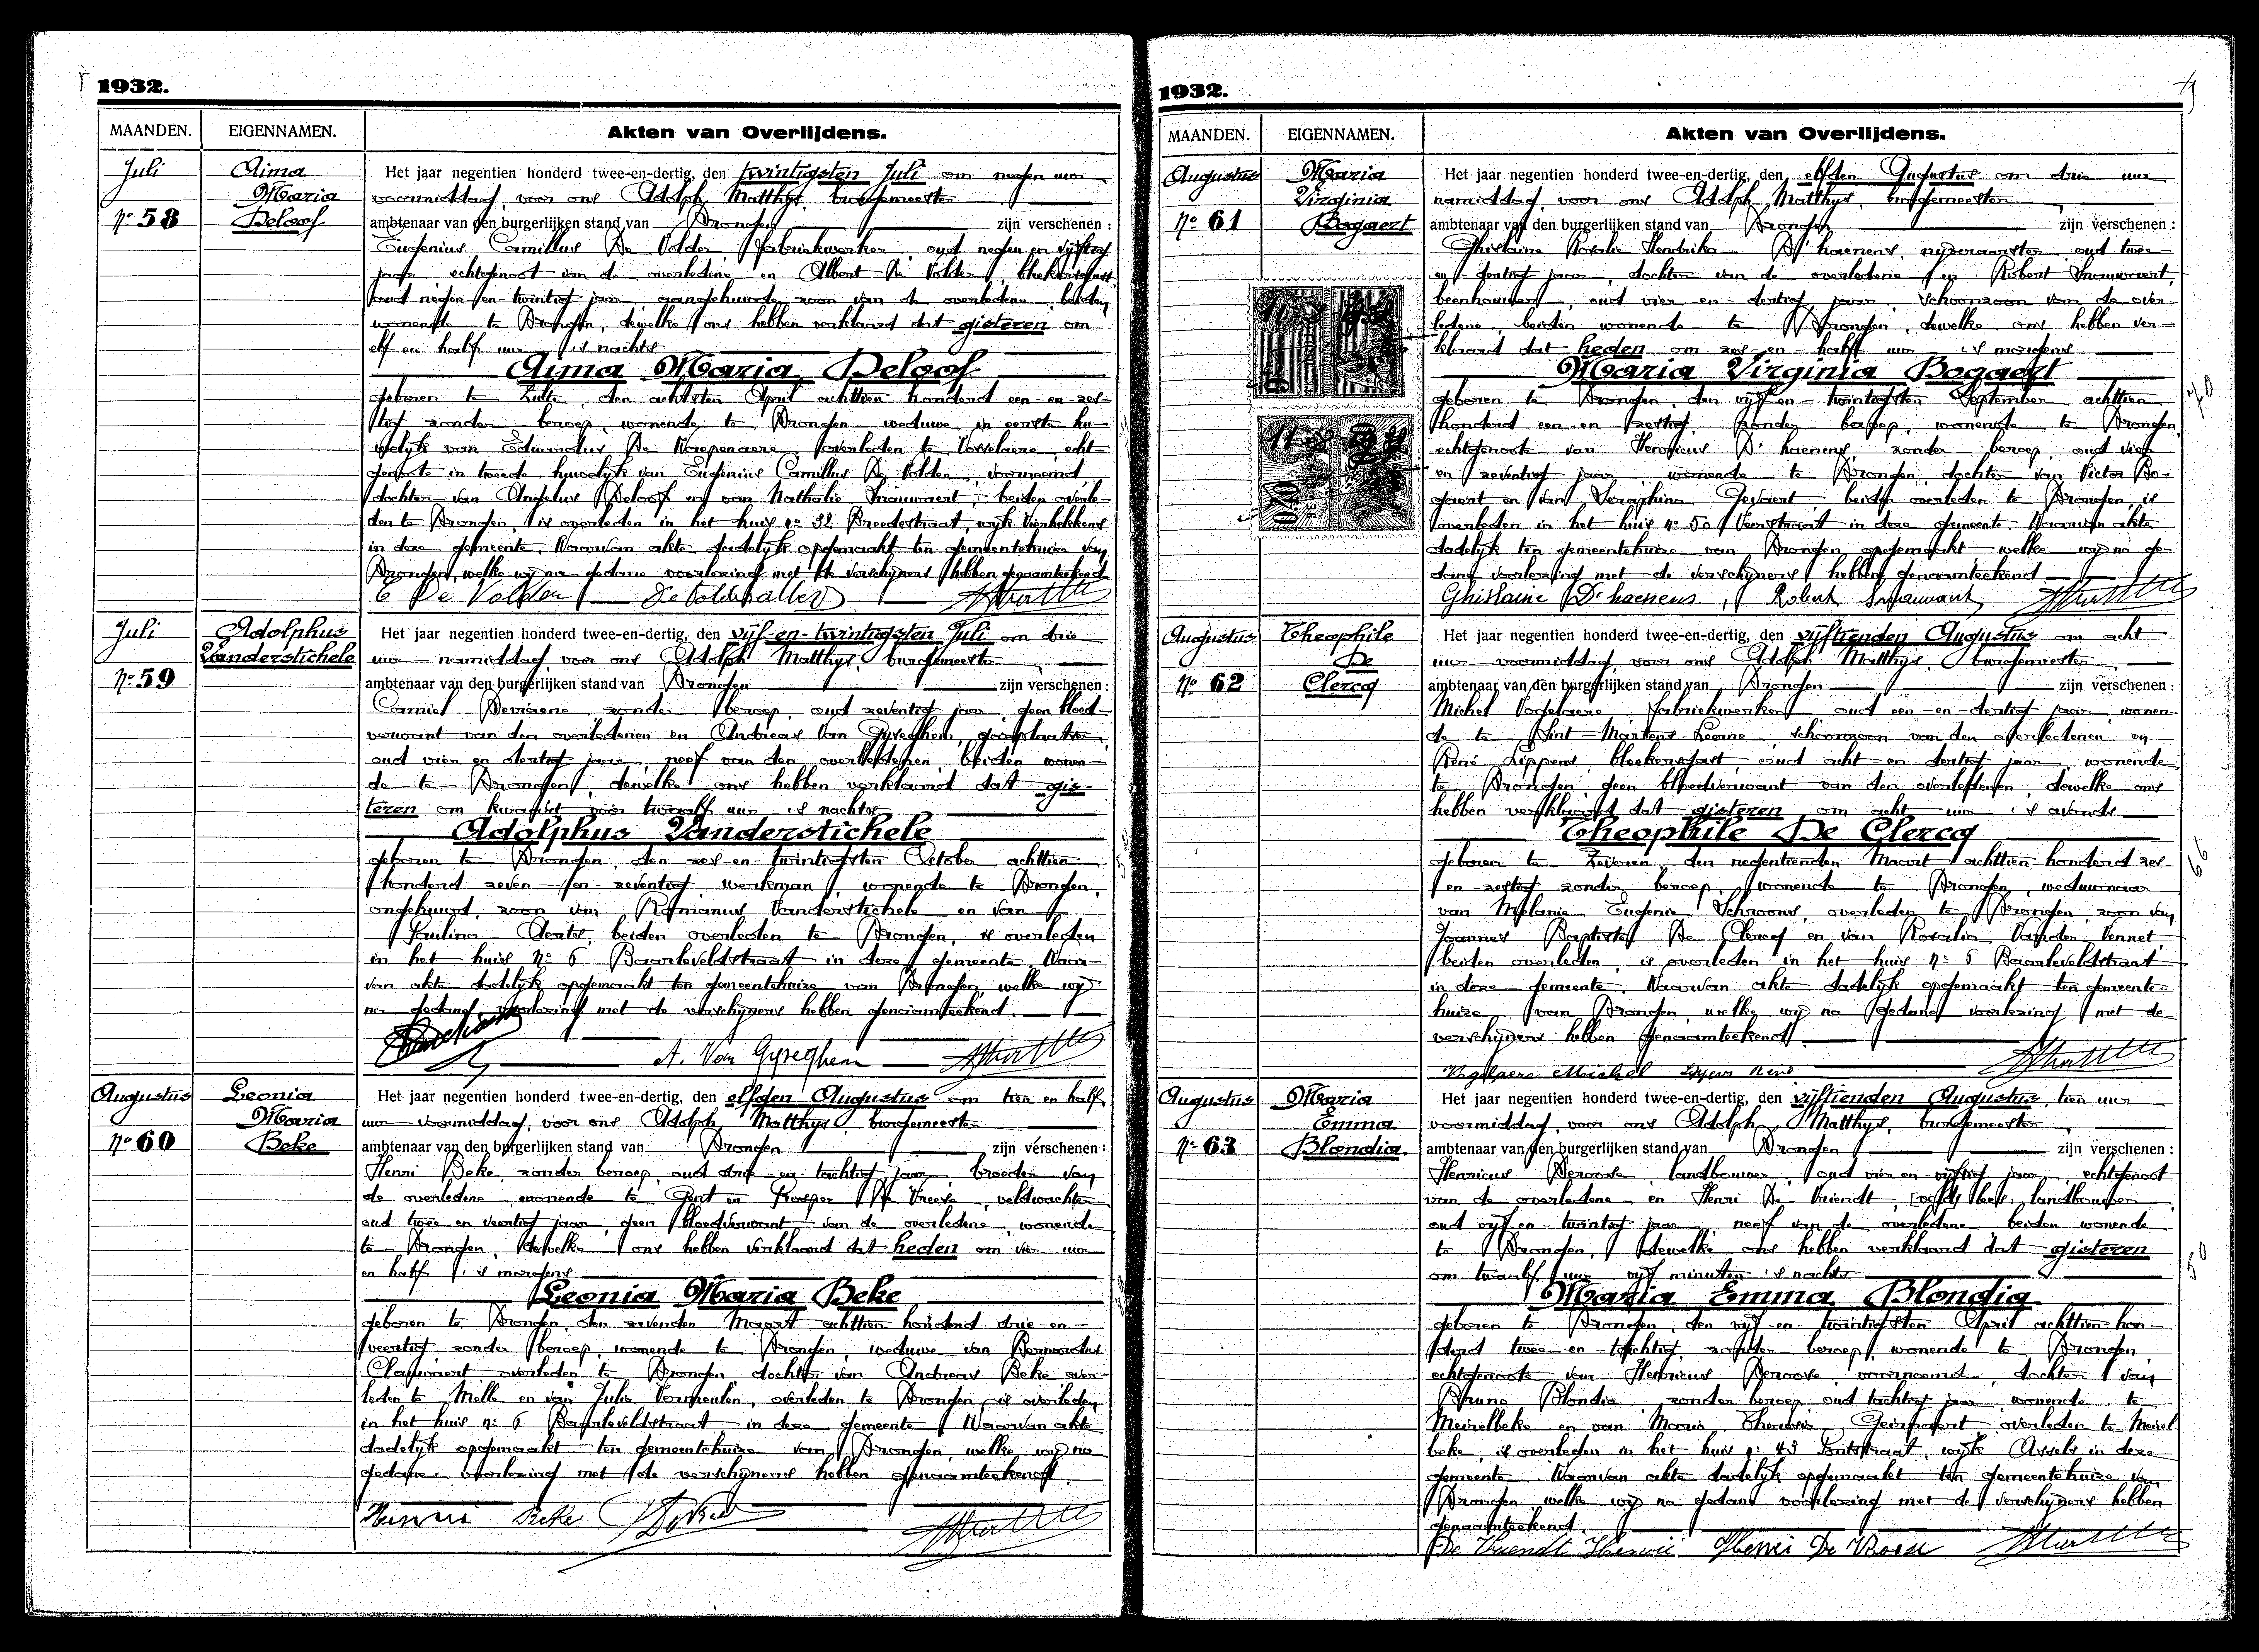 1932.
MAANDEN. EIGENNAMEN. Akten van Overlijdens.
Juli
No 58
Aima
Maria
Deloof
Het jaar negentien honderd twee-en-dertig, den twintigsten Juli om negen uur
voormiddag, voor ons Adolph Matthys, burgemeester
ambtenaar van den burgerlijken stand van Drongen zijn verschenen :
Eugenius Camillus De Volder, fabriekwerker, oud negen en vijftig
jaar echtgenoot van de overledene en Albert De Volder,
oud negen en-twintig jaar, aangehuwde zoon van de overledene, beiden
wonende te Drongen, dewelke ons hebben verklaard dat gisteren om
elf en half uur 's nachts
Aima Maria Deloof
geboren te Zulte, den achtsten April achttien honderd een-en-zes-
tig zonder beroep, wonende te Drongen weduwe in eerste hu-
welijk van Eduardus De Waepenaere overleden te Vosselaere, echt-
genoote in tweede huwelijk van Eugenius Camillus De Volder, voornoemd
dochter van Angelus Deloof en van Nathalie Snauwaert, beiden overle-
den te Drongen, is overleden in het huis no 32 Breedestraat, wijk Vierhekkens
in deze gemeente. Waarvan akte dadelijk opgemaakt ten gemeentehuize van
Drongen, welke wij na gedane voorlezing met de verschijners hebben genaamteekend.
E De Volder
Juli
No 59
Adolphus
Vanderstichele
Het jaar negentien honderd twee-en-dertig, den vijf-en-twintigsten Juli om drie
uur namiddag, voor ons Adolph Matthys, burgemeester
ambtenaar van den burgerlijken stand van Drongen zijn verschenen :
Camiel zonder beroep, oud zeventig jaar, geen bloed-
verwant van den overledenen en Andreas Van Gyseghem,
oud vier en dertig jaar, neef van den overledenen, beiden wonen-
de te Drongen, dewelke ons hebben verklaard dat gis-
teren om kwaart voor twaalf uur 's nachts
Adolphus Vanderstichele
geboren te Drongen, den zes-en-twintigsten October achttien
honderd zeven-en-zeventig werkman, wonende te Drongen,
ongehuwd, zoon van Romanus Vanderstichele en van
Paulina beiden overleden te Drongen, is overleden
in het huis No 6 Baarleveldstraat in deze gemeente. Waar-
van akte dadelijk opgemaakt ten gemeentehuize van Drongen, welke wij
na gedane voorlezing met de verschijners hebben genaamteekend.
A. Van Gyseghem
Augustus
No 60
Leonia
Maria
Beke
Het jaar negentien honderd twee-en-dertig, den elfden Augustus om tien en half
uur voormiddag, voor ons Adolph Matthys, burgemeester
ambtenaar van den burgerlijken stand van Drongen zijn verschenen :
Henri Beke, zonder beroep, oud drie-en-tachtig jaar, broeder van
de overledene, wonende te Gent en Prosper De Vreese, veldwachter
oud twee en veertig jaar, geen bloedverwant van de overledene, wonende
te Drongen, dewelke ons hebben verklaard dat heden om vier uur
en half 's morgens
Leonia Maria Beke
geboren te Drongen, den zevenden Maart achttien honderd drie-en-
veertig zonder beroep, wonende te Drongen, weduwe van Bernardus
Claywaert overleden te Drongen dochter van Andreas Beke over-
leden te Melle en van Julie Vermeulen, overleden te Drongen is overleden
in het huis no 6 Baarleveldstraat in deze gemeente. Waarvan akte
dadelijk opgemaakt ten gemeentehuize van Drongen, welke wij na
gedane voorlezing met de verschijners hebben genaamteekend.
Henri Beke
1932.
MAANDEN. EIGENNAMEN. Akten van Overlijdens.
Augustus
No 61
Maria
Virginia
Bogaert
Het jaar negentien honderd twee-en-dertig, den elfden Augustus om drie uur
namiddag, voor ons Adolph Matthys, burgemeester
ambtenaar van den burgerlijken stand van Drongen zijn verschenen :
Ghislaine Rosalie Hendrika D'haenens, nijveraarster, oud twee-
en-dertig jaar, dochter van de overledene en Robert Snauwaert,
beenhouwer, oud vier en-dertig jaar, schoonzoon van de over-
ledene, beiden wonende te Drongen, dewelke ons hebben ver-
klaard dat heden om zes-en-half uur 's morgens
Maria Virginia Bogaert
geboren te Drongen, den vijf en-twintigsten September achttien
honderd een-en-zestig, zonder beroep, wonende te Drongen,
echtgenoote van Henricus D'haenens, zonder beroep, oud vier
en zeventig jaar, wonende te Drongen, dochter van Victor Bo-
gaert en van Seraphina Gevaert, beiden overleden te Drongen, is
overleden in het huis no 50 Veerstraat in deze gemeente. Waarvan akte
dadelijk ten gemeentehuize van Drongen opgemaakt, welke wij na ge-
dane voorlezing met de verschijners hebben genaamteekend.
Ghislaine D'haenens, Robert Snauwaert
70
Augustus
No 62
Theophile
De
Clercq
Het jaar negentien honderd twee-en-dertig, den vijftienden Augustus om acht
uur voormiddag, voor ons Adolph Matthys, burgemeester
ambtenaar van den burgerlijken stand van Drongen zijn verschenen :
Michel Vogelaere, fabriekwerker, oud een-en-dertig jaar, wonen-
de te Sint-Martens-Leerne, schoonzoon van den overledenen en
René Lippens, bleekersgast, oud acht-en-dertig jaar, wonende
te Drongen, geen bloedverwant van den overledenen, dewelke ons
hebben verklaard dat gisteren om acht uur 's avonds
Theophile De Clercq
geboren te Zeveren, den negentienden Maart achttien honderd zes-
en-zestig zonder beroep, wonende te Drongen, weduwnaar
van Melanie Eugenie Schroons, overleden te Drongen, zoon van
Joannes Baptiste De Clercq en van Rosalie Vander Vennet,
beiden overleden, is overleden in het huis No 6 Baarleveldstraat
in deze gemeente. Waarvan akte dadelijk opgemaakt ten gemeente-
huize van Drongen, welke wij na gedane voorlezing met de
verschijners hebben genaamteekend.
66
Augustus
No 63
Maria
Emma
Blondia
Het jaar negentien honderd twee-en-dertig, den vijftienden Augustus, tien uur
voormiddag, voor ons Adolph Matthys, burgemeester
ambtenaar van den burgerlijken stand van Drongen zijn verschenen :
Henricus Deroose, landbouwer, oud vier en-vijftig jaar, echtgenoot
van de overledene en Henri De Vriendt, landbouwer
oud vijf en-twintig jaar, neef van de overledene beiden wonende
te Drongen, dewelke ons hebben verklaard dat gisteren
om twaalf uur vijf minuten 's nachts
Maria Emma Blondia
geboren te Drongen, den vijf-en-twintigsten April achttien hon-
derd twee-en-tachtig, zonder beroep, wonende te Drongen,
echtgenoote van Henricus Deroose, voornoemd, dochter van
Bruno Blondia, zonder beroep, oud tachtig jaar wonende te
Meirelbeke en van Maria Theresia overleden te Meirel
beke, is overleden in het huis no 43 Pontstraat, wijk Assels in deze
gemeente. Waarvan akte dadelijk opgemaakt ten gemeentehuize van
Drongen welke wij na gedane voorlezing met de verschijners hebben
genaamteekend.
50